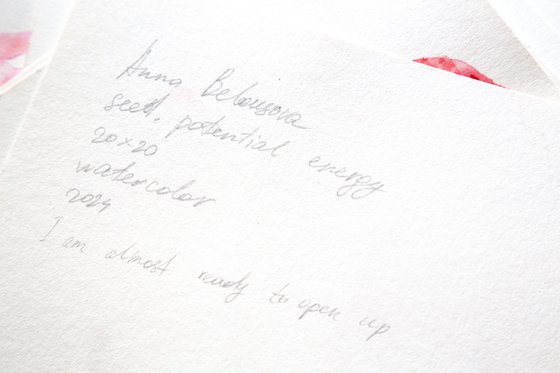 Anna Belousova
seed, potential energy
20x20
watercolor
2024
I am almost ready to open up